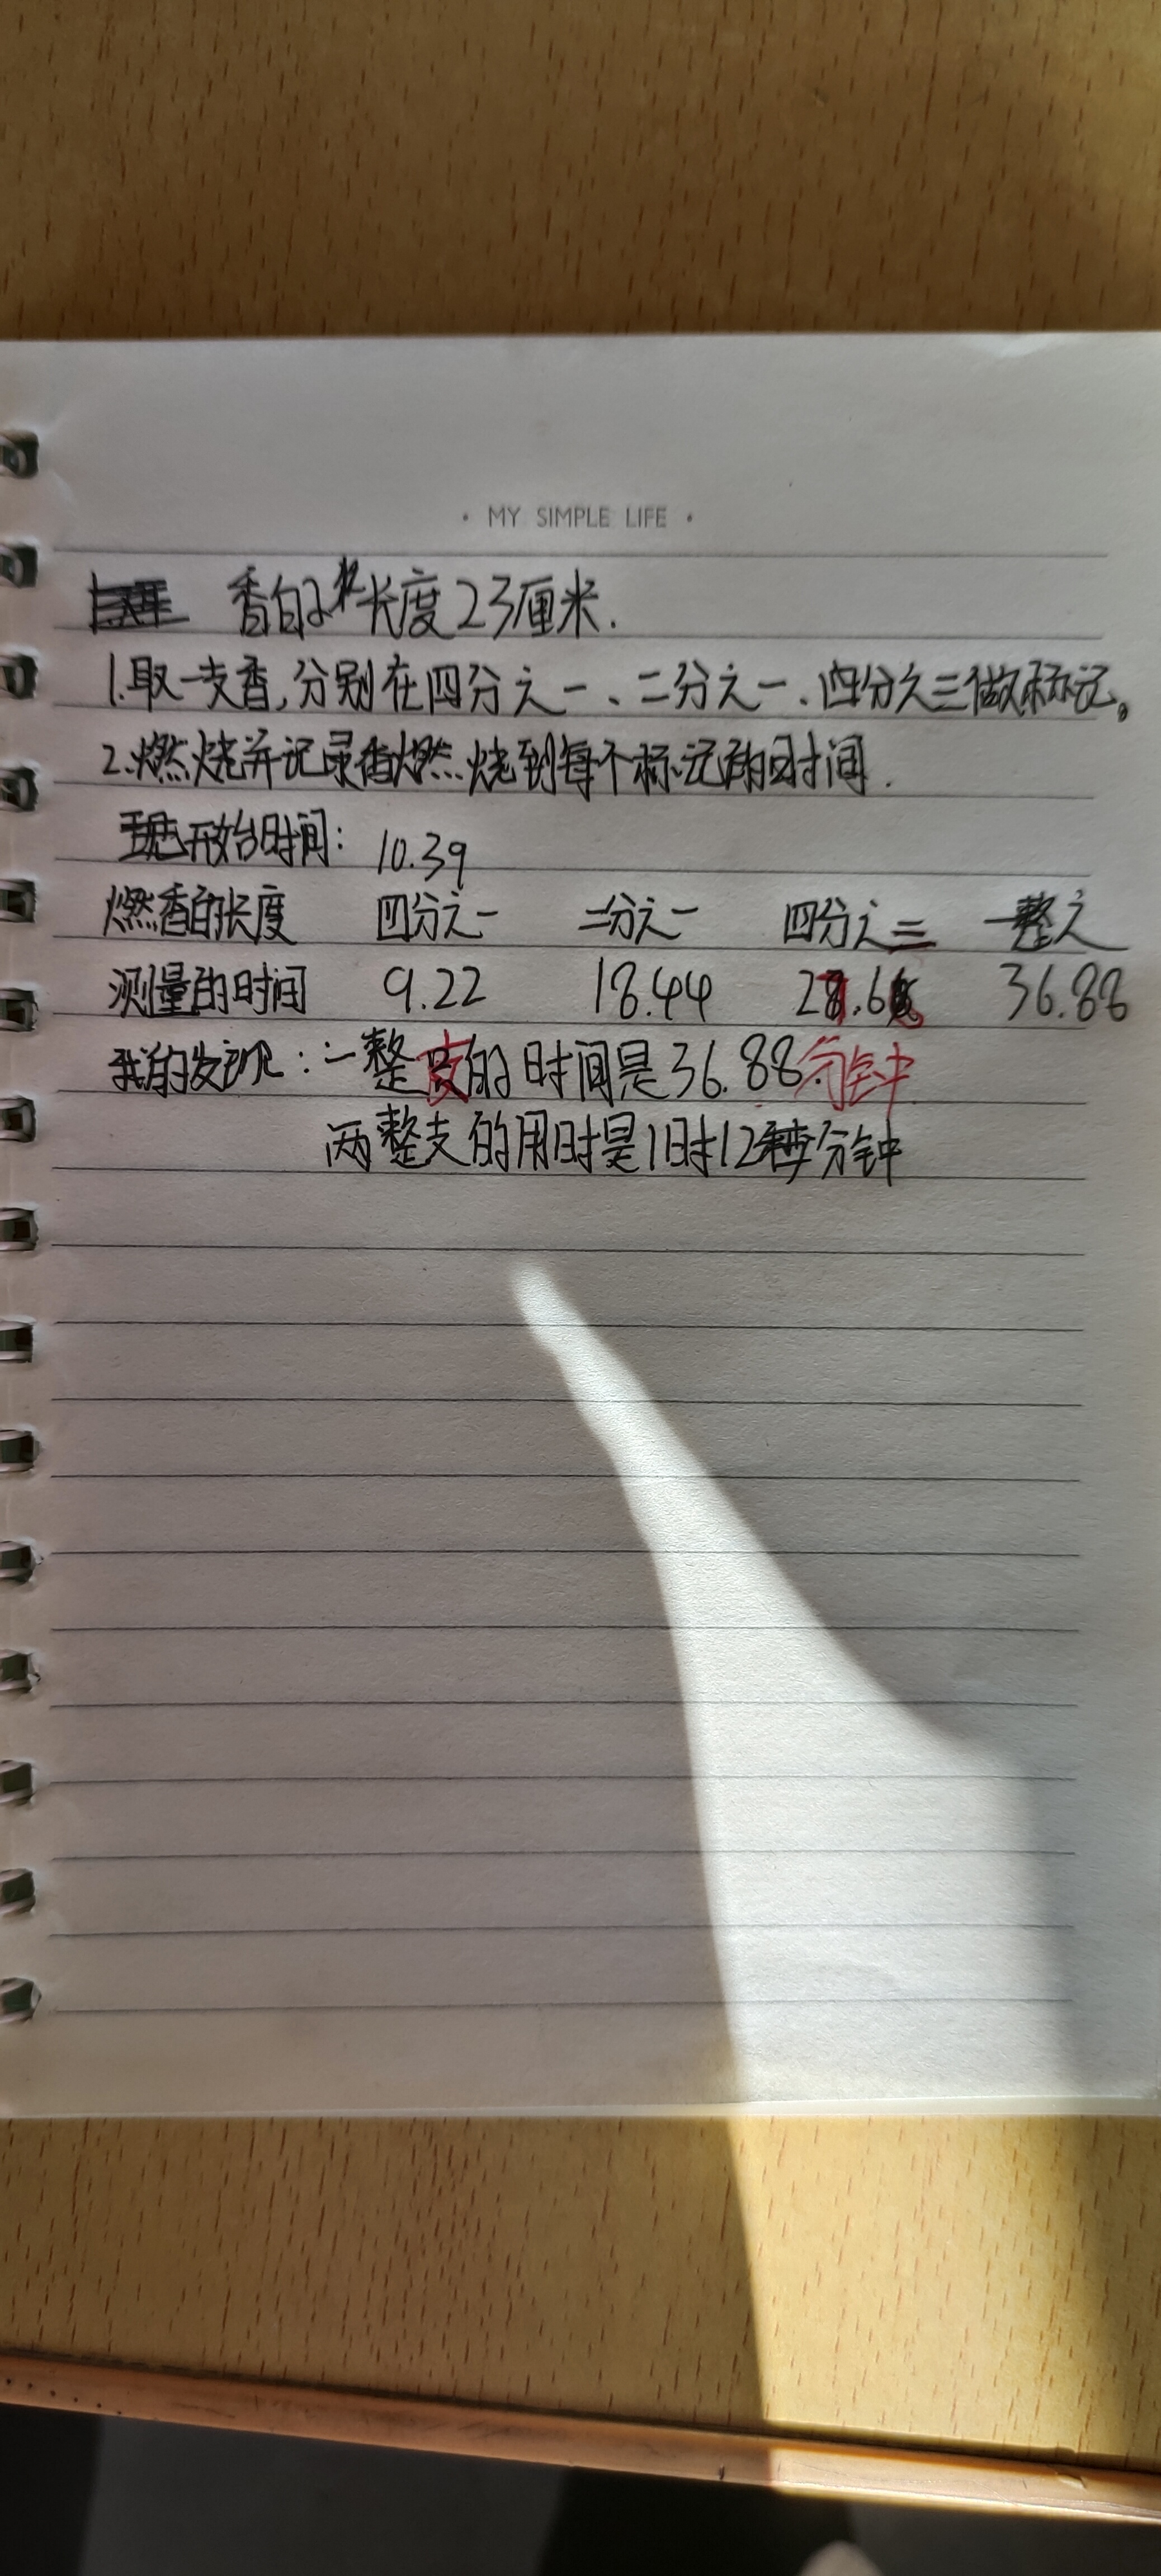 · MY SIMPLE LIFE ·
香的长度23厘米.
1.取一支香,分别在四分之一、二分之一、四分之三做标记。
2.燃烧并记录香燃烧到每个标记的时间.
开始时间: 10.39
燃香的长度 四分之一 二分之一 四分之三 一整支
测量的时间 9.22 18.44 27.66 36.88
我的发现:一整支的时间是36.88分钟
两整支的用时是1时12分钟